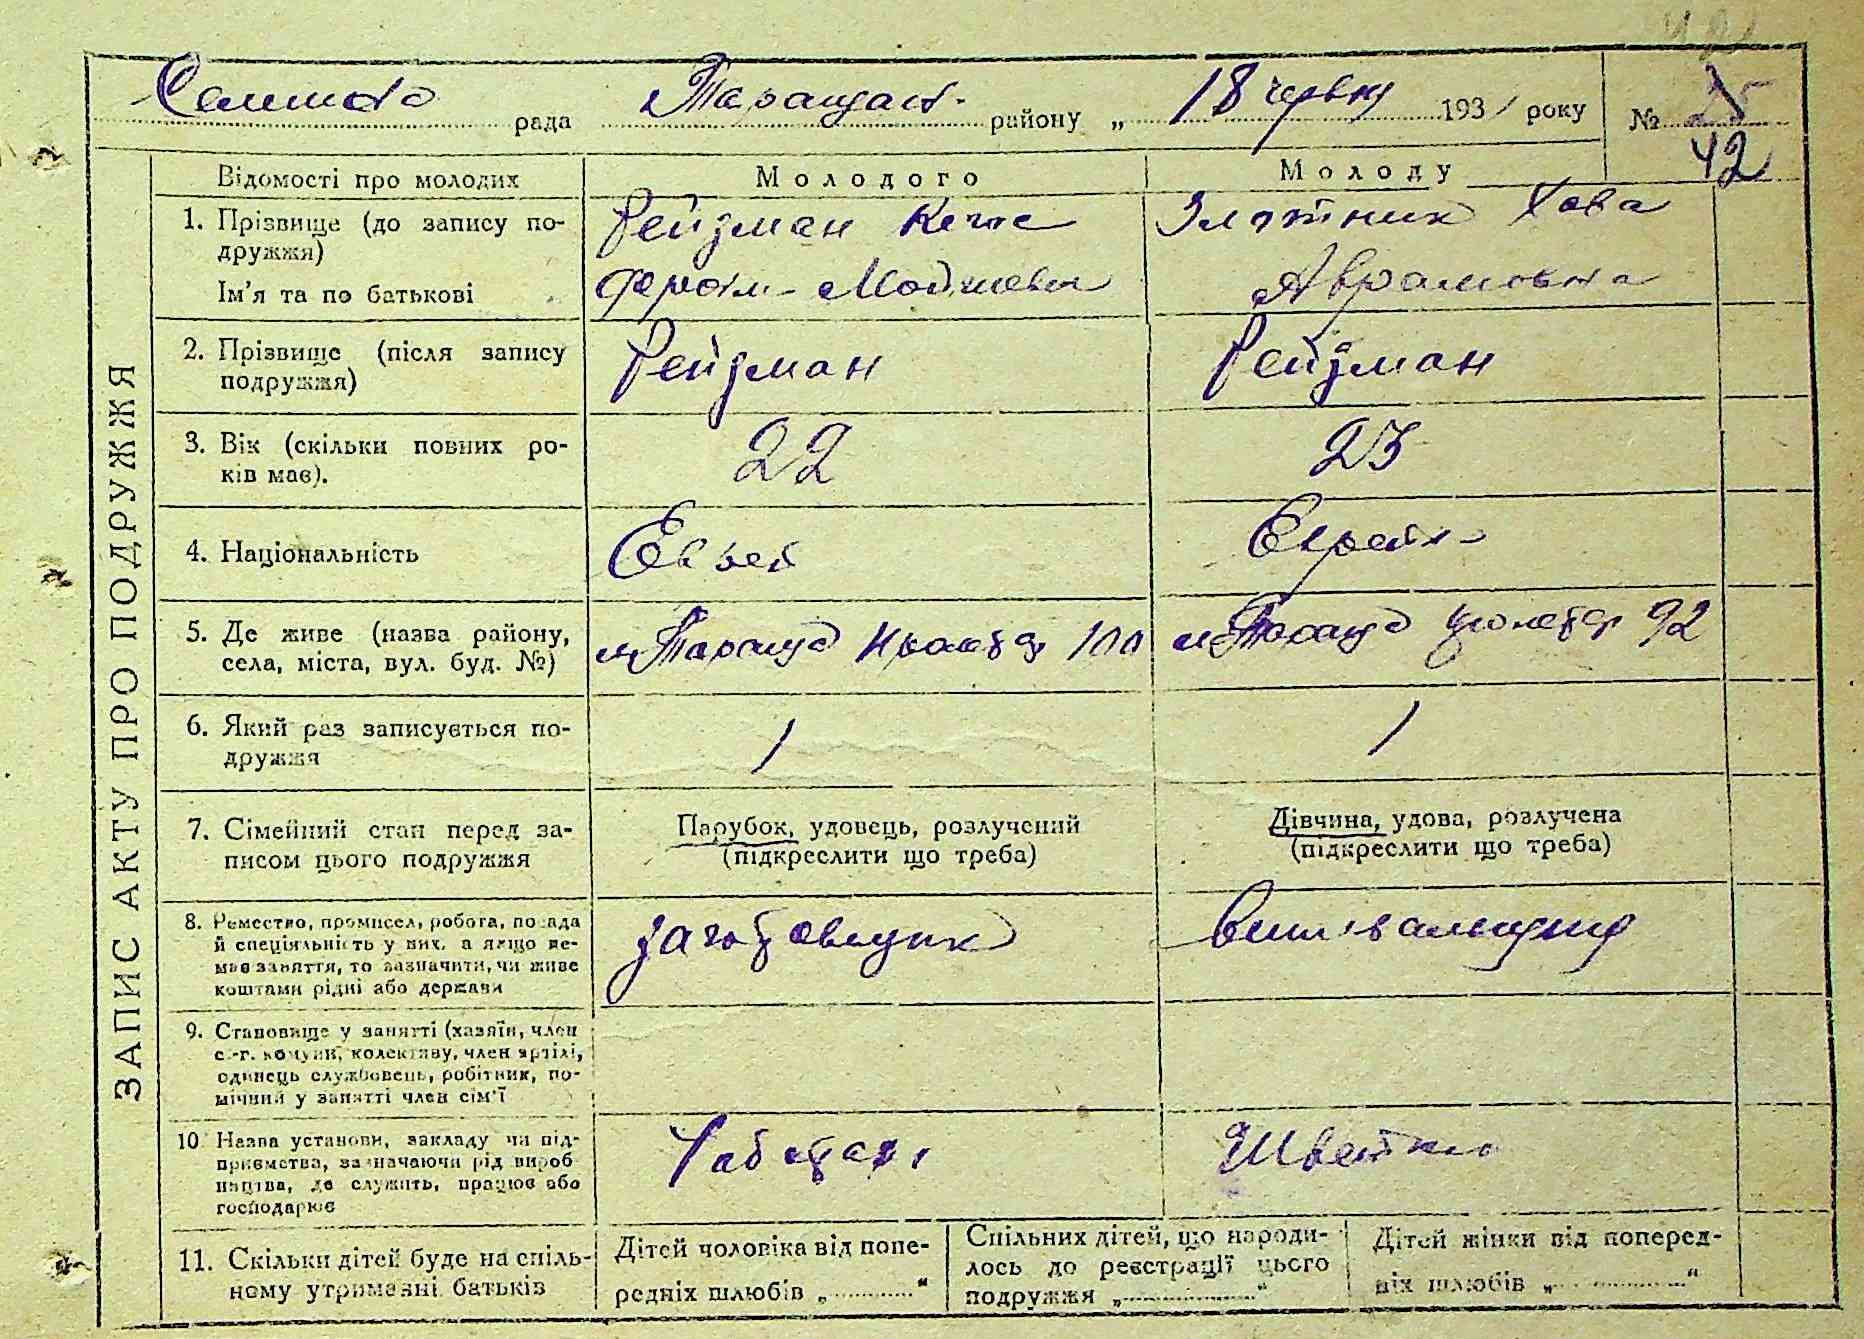 рада Таращанс. району „ 18 червня 1931 року № 25
42
ЗАПИС АКТУ ПРО ПОДРУЖЖЯ
Відомості про молодих
Молодого
Молоду
1. Прізвище (до запису по-
дружжя)
Ім'я та по батькові
Рейзман
Мойшевич
Злотник Хова
Аврамовна
2. Прізвище (після запису
подружжя)
Рейзман
Рейзман
3. Вік (скільки повних ро-
ків має).
22
23
4. Національність
Еврей
Еврейка
5. Де живе (назва району,
села, міста, вул. буд. №)
м Тараща 100
м Тараща 92
6. Який раз записується по-
дружжя
1
1
7. Сімейний стан перед за-
писом цього подружжя
Парубок, удовець, розлучений
(підкреслити що треба)
Дівчина, удова, розлучена
(підкреслити що треба)
8. Ремество, промисел, робота, посада
й спеціяльність у них, а якщо не-
має заняття, то зазначити, чи живе
коштами рідні або держави
заготовщик
9. Становище у занятті (хазяїн, член
с.-г. комуни, колективу, член артілі,
одинець службовець, робітник, по-
мічний у занятті член сім'ї
10 Назва установи, закладу чи під-
приємства, зазначаючи рід вироб
ництва, де служить, працює або
господарює
11. Скільки дітей буде на спіль-
ному утриманні батьків
Дітей чоловіка від попе-
редніх шлюбів „ “
Спільних дітей, що народи-
лось до реєстрації цього
подружжя „ “
Дітей жінки від поперед-
ніх шлюбів „ “